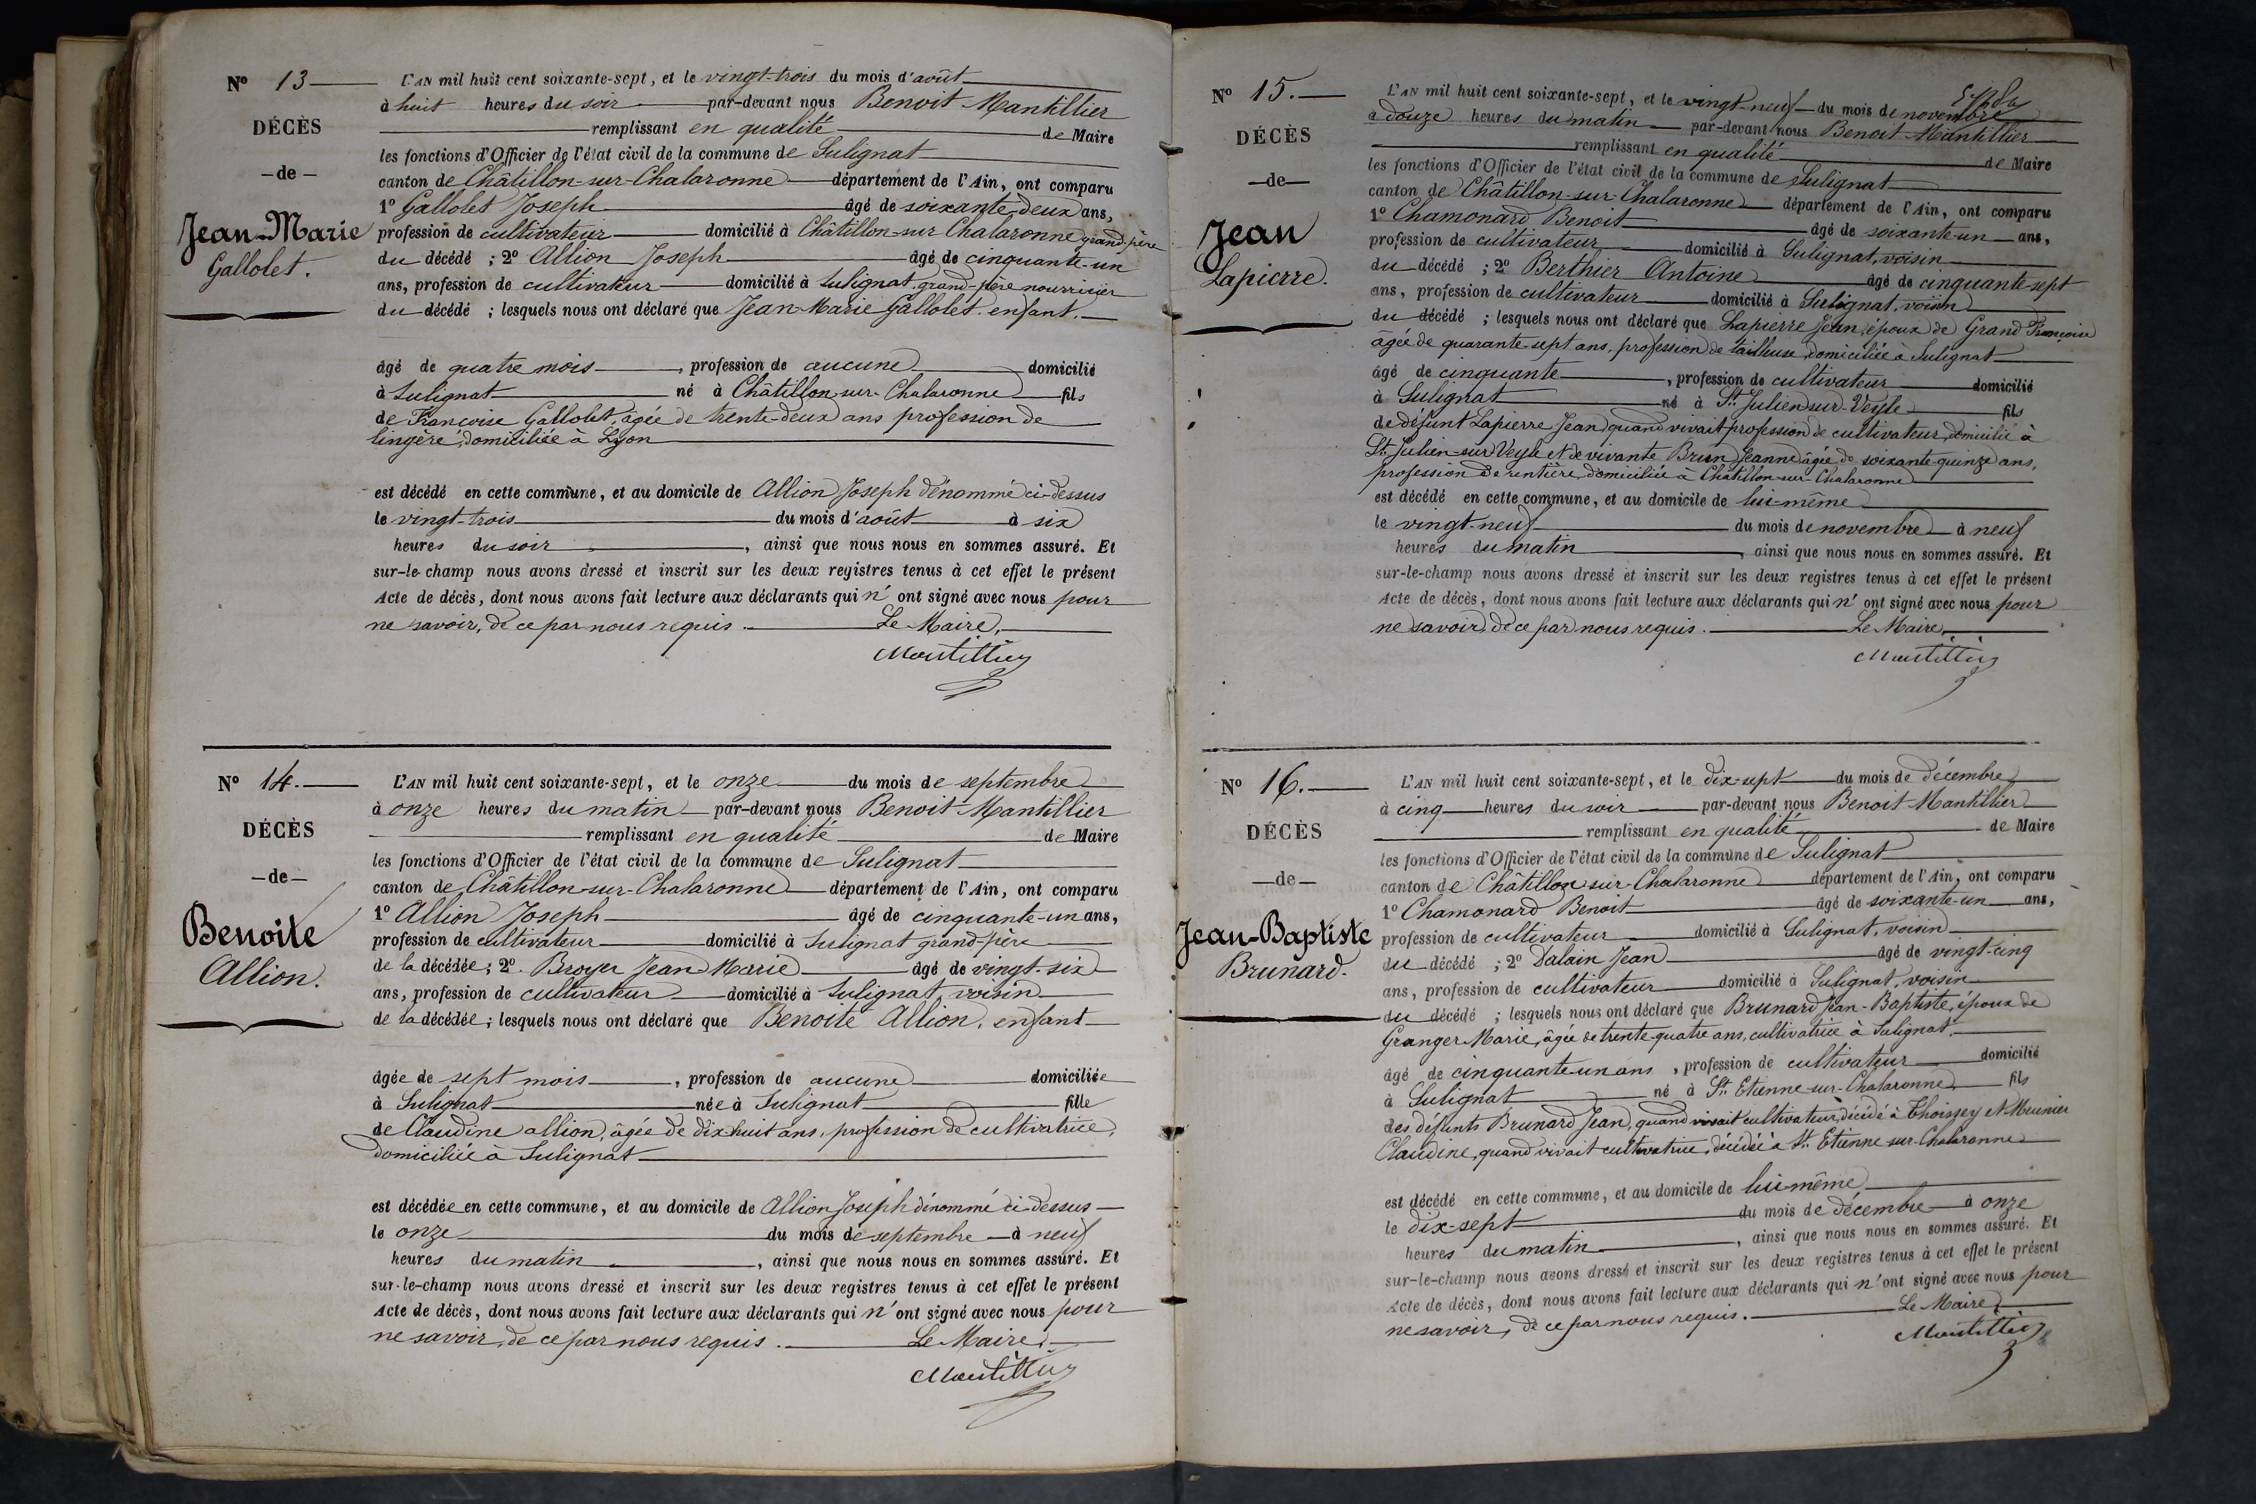 N° 13
DÉCÈS
— de —
Jean-Marie
Gallolet.
L'AN mil huit cent soixante-sept, et le vingt-trois du mois d'août
à huit heures du soir par-devant nous Benoit Mantillier
remplissant en qualité de Maire
les fonctions d'Officier de l'état civil de la commune de Sulignat
canton de Châtillon-sur-Chalaronne département de l'Ain, ont comparu
1° Gallolet Joseph âgé de soixante-deux ans,
profession de cultivateur domicilié à Châtillon-sur Chalaronne grand-père
du décédé ; 2° Allion Joseph âgé de cinquante-un
ans, profession de cultivateur domicilié à Sulignat, grand-père nourricier
du décédé ; lesquels nous ont déclaré que Jean-Marie Gallolet enfant.
âgé de quatre mois, profession de aucune domicilié
à Sulignat né à Châtillon-sur-Chalaronne fils
de Françoise Gallolet, âgée de trente-deux ans profession de
lingère, domiciliée à Lyon
est décédé en cette commune, et au domicile de Allion Joseph dénommé ci-dessus
le vingt-trois du mois d'août à six
heures du soir, ainsi que nous nous en sommes assuré. Et
sur-le-champ nous avons dressé et inscrit sur les deux registres tenus à cet effet le présent
Acte de décès, dont nous avons fait lecture aux déclarants qui n'ont signé avec nous pour
ne savoir, de ce par nous requis. Le Maire,
Mantillier
N° 14.
DÉCÈS
— de —
Benoite
Allion.
L'AN mil huit cent soixante-sept, et le onze du mois de septembre
à onze heures du matin par-devant nous Benoit Mantillier
remplissant en qualité de Maire
les fonctions d'Officier de l'état civil de la commune de Sulignat
canton de Châtillon-sur-Chalaronne département de l'Ain, ont comparu
1° Allion Joseph âgé de cinquante-un ans,
profession de cultivateur domicilié à Sulignat grand-père
de la décédée ; 2° Broyer Jean Marie âgé de vingt-six
ans, profession de cultivateur domicilié à Sulignat, voisin
de la décédée ; lesquels nous ont déclaré que Benoite Allion, enfant
âgée de sept mois, profession de aucune domiciliée
à Sulignat née à Sulignat fille
de Claudine allion, âgée de dix-huit ans, profession de cultivatrice,
domiciliée à Sulignat
est décédée en cette commune, et au domicile de Allion Joseph dénommé ci-dessus
le onze du mois de septembre à neuf
heures du matin, ainsi que nous nous en sommes assuré. Et
sur-le-champ nous avons dressé et inscrit sur les deux registres tenus à cet effet le présent
Acte de décès, dont nous avons fait lecture aux déclarants qui n'ont signé avec nous pour
ne savoir, de ce par nous requis. Le Maire,
Mantillier
N° 15.
DÉCÈS
— de —
Jean
Lapierre.
L'AN mil huit cent soixante-sept, et le vingt-neuf du mois de novembre
à douze heures du matin par-devant nous Benoit Mantillier
remplissant en qualité de Maire
les fonctions d'Officier de l'état civil de la commune de Sulignat
canton de Châtillon-sur-Chalaronne département de l'Ain, ont comparu
1° Chamonard Benoit âgé de soixante-un ans,
profession de cultivateur domicilié à Sulignat, voisin
du décédé ; 2° Berthier Antoine âgé de cinquante-sept
ans, profession de cultivateur domicilié à Sulignat, voisin
du décédé ; lesquels nous ont déclaré que Lapierre Jean, époux de Grand Françoise
âgée de quarante-sept ans, profession de tailleuse, domiciliée à Sulignat
âgé de cinquante, profession de cultivateur domicilié
à Sulignat né à St Julien-sur-Veyle fils
de défunt Lapierre Jean quand vivait profession de cultivateur, domicilié à
St Julien-sur-Veyle et de vivante Brun Jeanne âgée de soixante-quinze ans,
profession de rentière, domiciliée à Châtillon-sur-Chalaronne
est décédé en cette commune, et au domicile de lui-même
le vingt-neuf du mois de novembre à neuf
heures du matin, ainsi que nous nous en sommes assuré. Et
sur-le-champ nous avons dressé et inscrit sur les deux registres tenus à cet effet le présent
Acte de décès, dont nous avons fait lecture aux déclarants qui n'ont signé avec nous pour
ne savoir, de ce par nous requis. Le Maire,
Mantillier
N° 16.
DÉCÈS
— de —
Jean-Baptiste
Brunard.
L'AN mil huit cent soixante-sept, et le dix-sept du mois de décembre
à cinq heures du soir par-devant nous Benoit Mantillier
remplissant en qualité de Maire
les fonctions d'Officier de l'état civil de la commune de Sulignat
canton de Châtillon sur-Chalaronne département de l'Ain, ont comparu
1° Chamonard Benoit âgé de soixante-un ans,
profession de cultivateur domicilié à Sulignat, voisin
du décédé ; 2° Dalain Jean âgé de vingt-cinq
ans, profession de cultivateur domicilié à Sulignat, voisin
du décédé ; lesquels nous ont déclaré que Brunard Jean-Baptiste, époux de
Granger Marie, âgée de trente-quatre ans, cultivatrice à Sulignat
âgé de cinquante-un ans, profession de cultivateur domicilié
à Sulignat né à St Etienne-sur-Chalaronne fils
des défunts Brunard Jean, quand vivait cultivateur, décédé à Thoissey et Meunier
Claudine, quand vivait cultivatrice, décédée à St Etienne sur-Chalaronne
est décédé en cette commune, et au domicile de lui-même
le dix-sept du mois de décembre à onze
heures du matin, ainsi que nous nous en sommes assuré. Et
sur-le-champ nous avons dressé et inscrit sur les deux registres tenus à cet effet le présent
Acte de décès, dont nous avons fait lecture aux déclarants qui n'ont signé avec nous pour
ne savoir, de ce par nous requis. Le Maire,
Mantillier